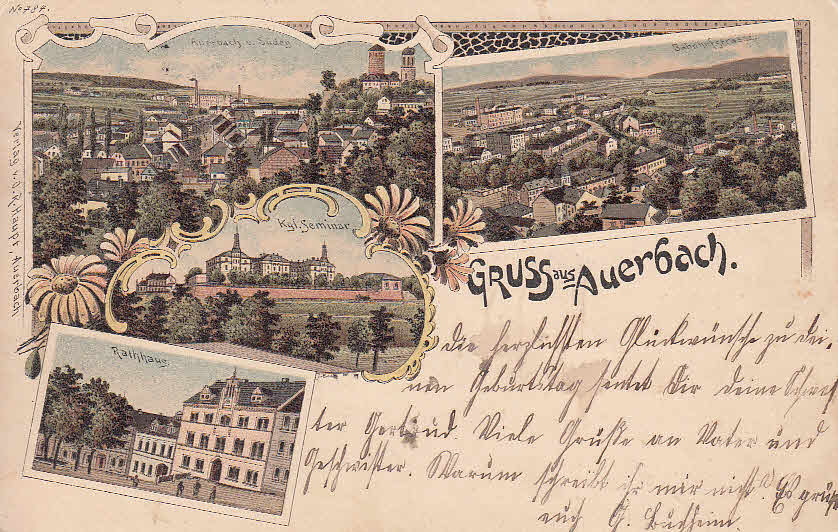 No 784.
Auerbach v. Süden
Bahnhofstrasse.
Verlag v. O. R. Haupt, Auerbach.
Kgl. Seminar
GRUSS aus Auerbach.
Rathhaus.
Die herzlichsten Glückwünsche zu dei-
nem Geburtstag sendet Dir deine Schwes
ter Gertrud. Viele Grüße an Vater und
Geschwister. Warum schreibt ihr mir nicht? Es grüßt
euch G.